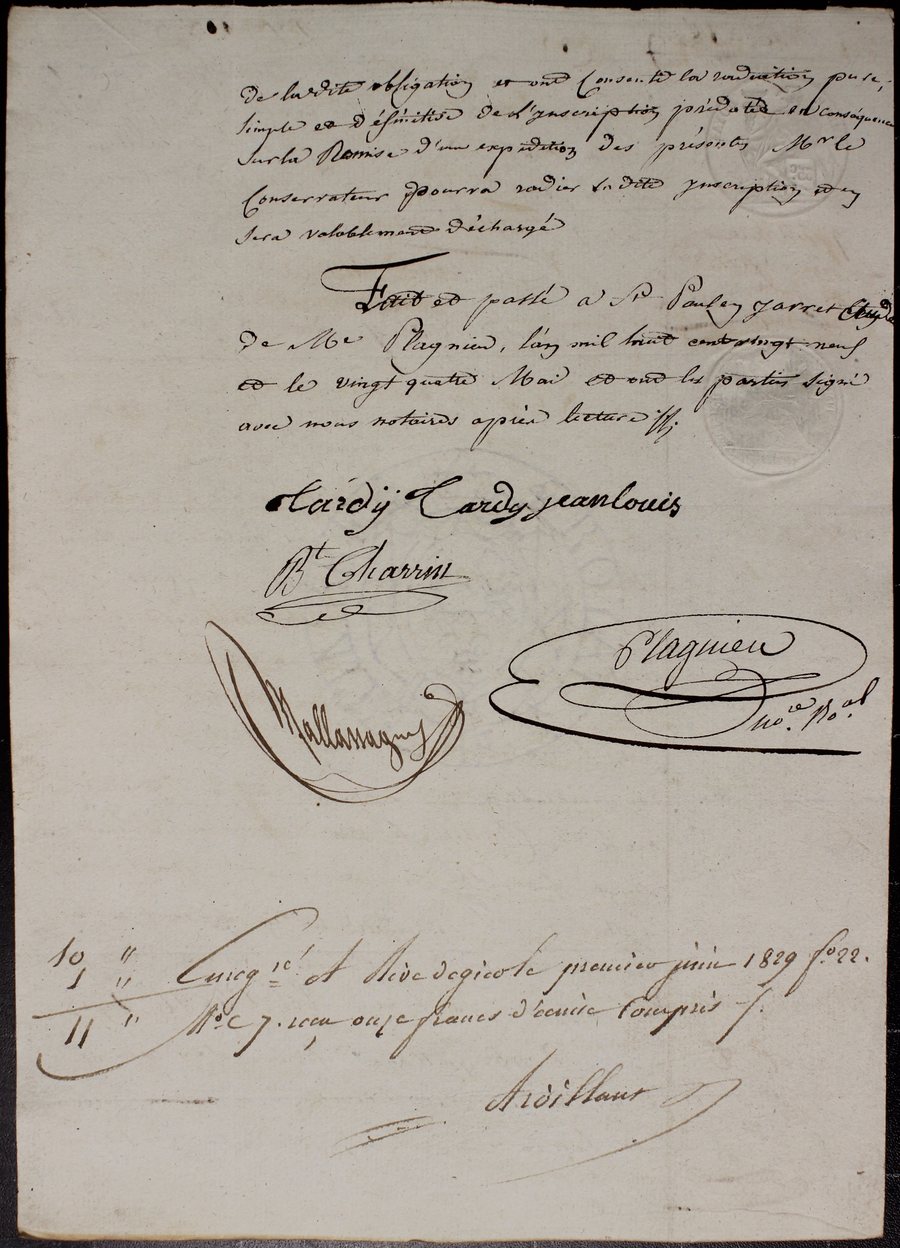 de la dite obligation et ont Consenti la radiation pure,
simple et définitive de l'ynscription prédatée en conséquence
sur la Remise d'une expédition des présentes Mr le
Conservateur pourra radier la dite ynscription et en
sera valablement déchargé
Fait et passé a St Paul en jarret Etude
de Me Plagnieu, l'an mil huit cent vingt neuf
et le vingt quatre Mai et ont les parties signé
avec nous notaires après lecture
tardÿ tardy jean louis
Bt Charrin
Plagnieu
nore Roal
Mallassagny
10 "
1 "
11 "
Enregré A Rive de gier le premier juin 1829 fo 22.
Ro C 7. reçu onze francs décime Compris
Ardillant